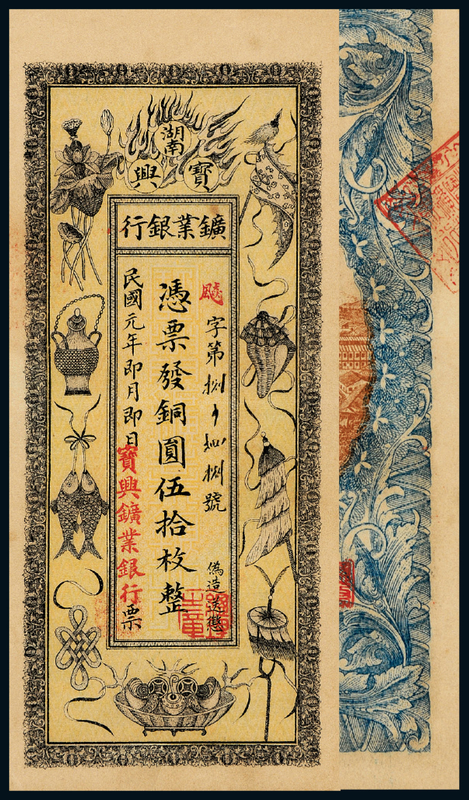 湖南
寶興
鑛業銀行
字第捌 捌號
偽造送懲
憑票發銅圓伍拾枚整
民國元年即月即日
寶興鑛業銀行票